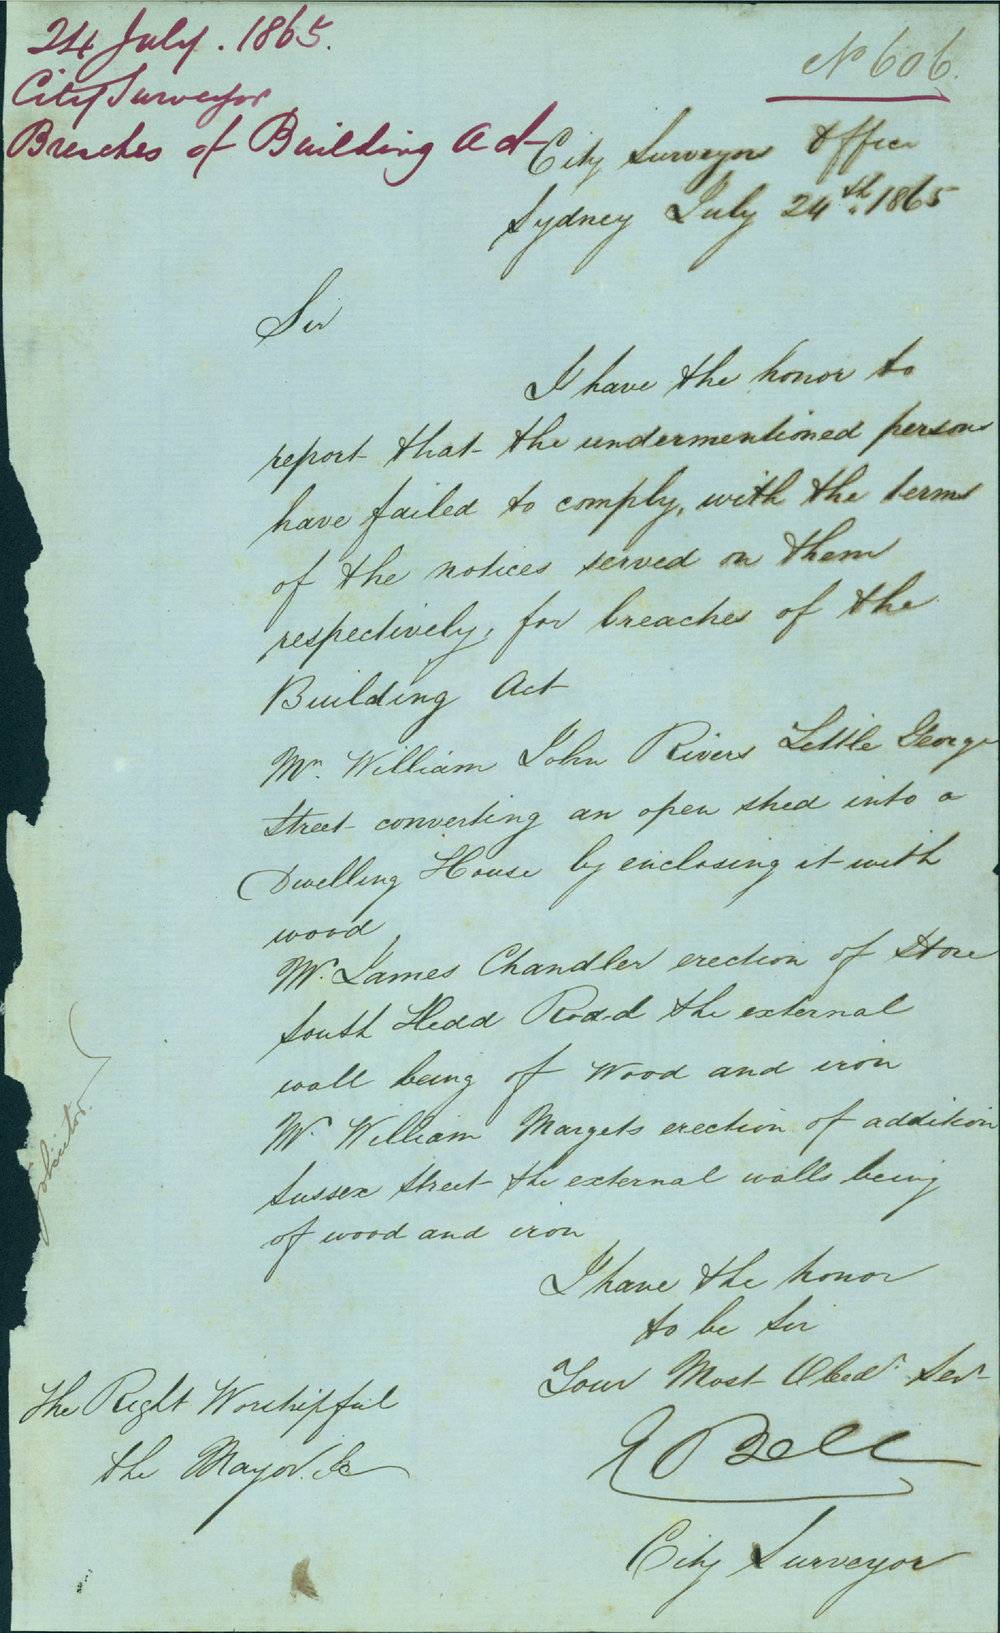 24 July. 1865.
City Surveyor
Breaches of Building Act
No 606.
City Surveyors Office
Sydney July 24th. 1865
Sir
I have the honor to
report that the undermentioned persons
have failed to comply, with the terms
of the notices served on them
respectively, for breaches of the
Building Act
Mr. William John Rivers Little George
Street converting an open shed into a
Dwelling House by enclosing it with
wood
Mr. James Chandler erection of Store
South Hedd Road the external
wall being of Wood and iron
Mr. William Margets erection of addition
Sussex Street the external walls being
of wood and iron
I have the honor
to be Sir
Your Most Obedt. Servt
E Bell
City Surveyor
The Right Worshipful
the Mayor. &c